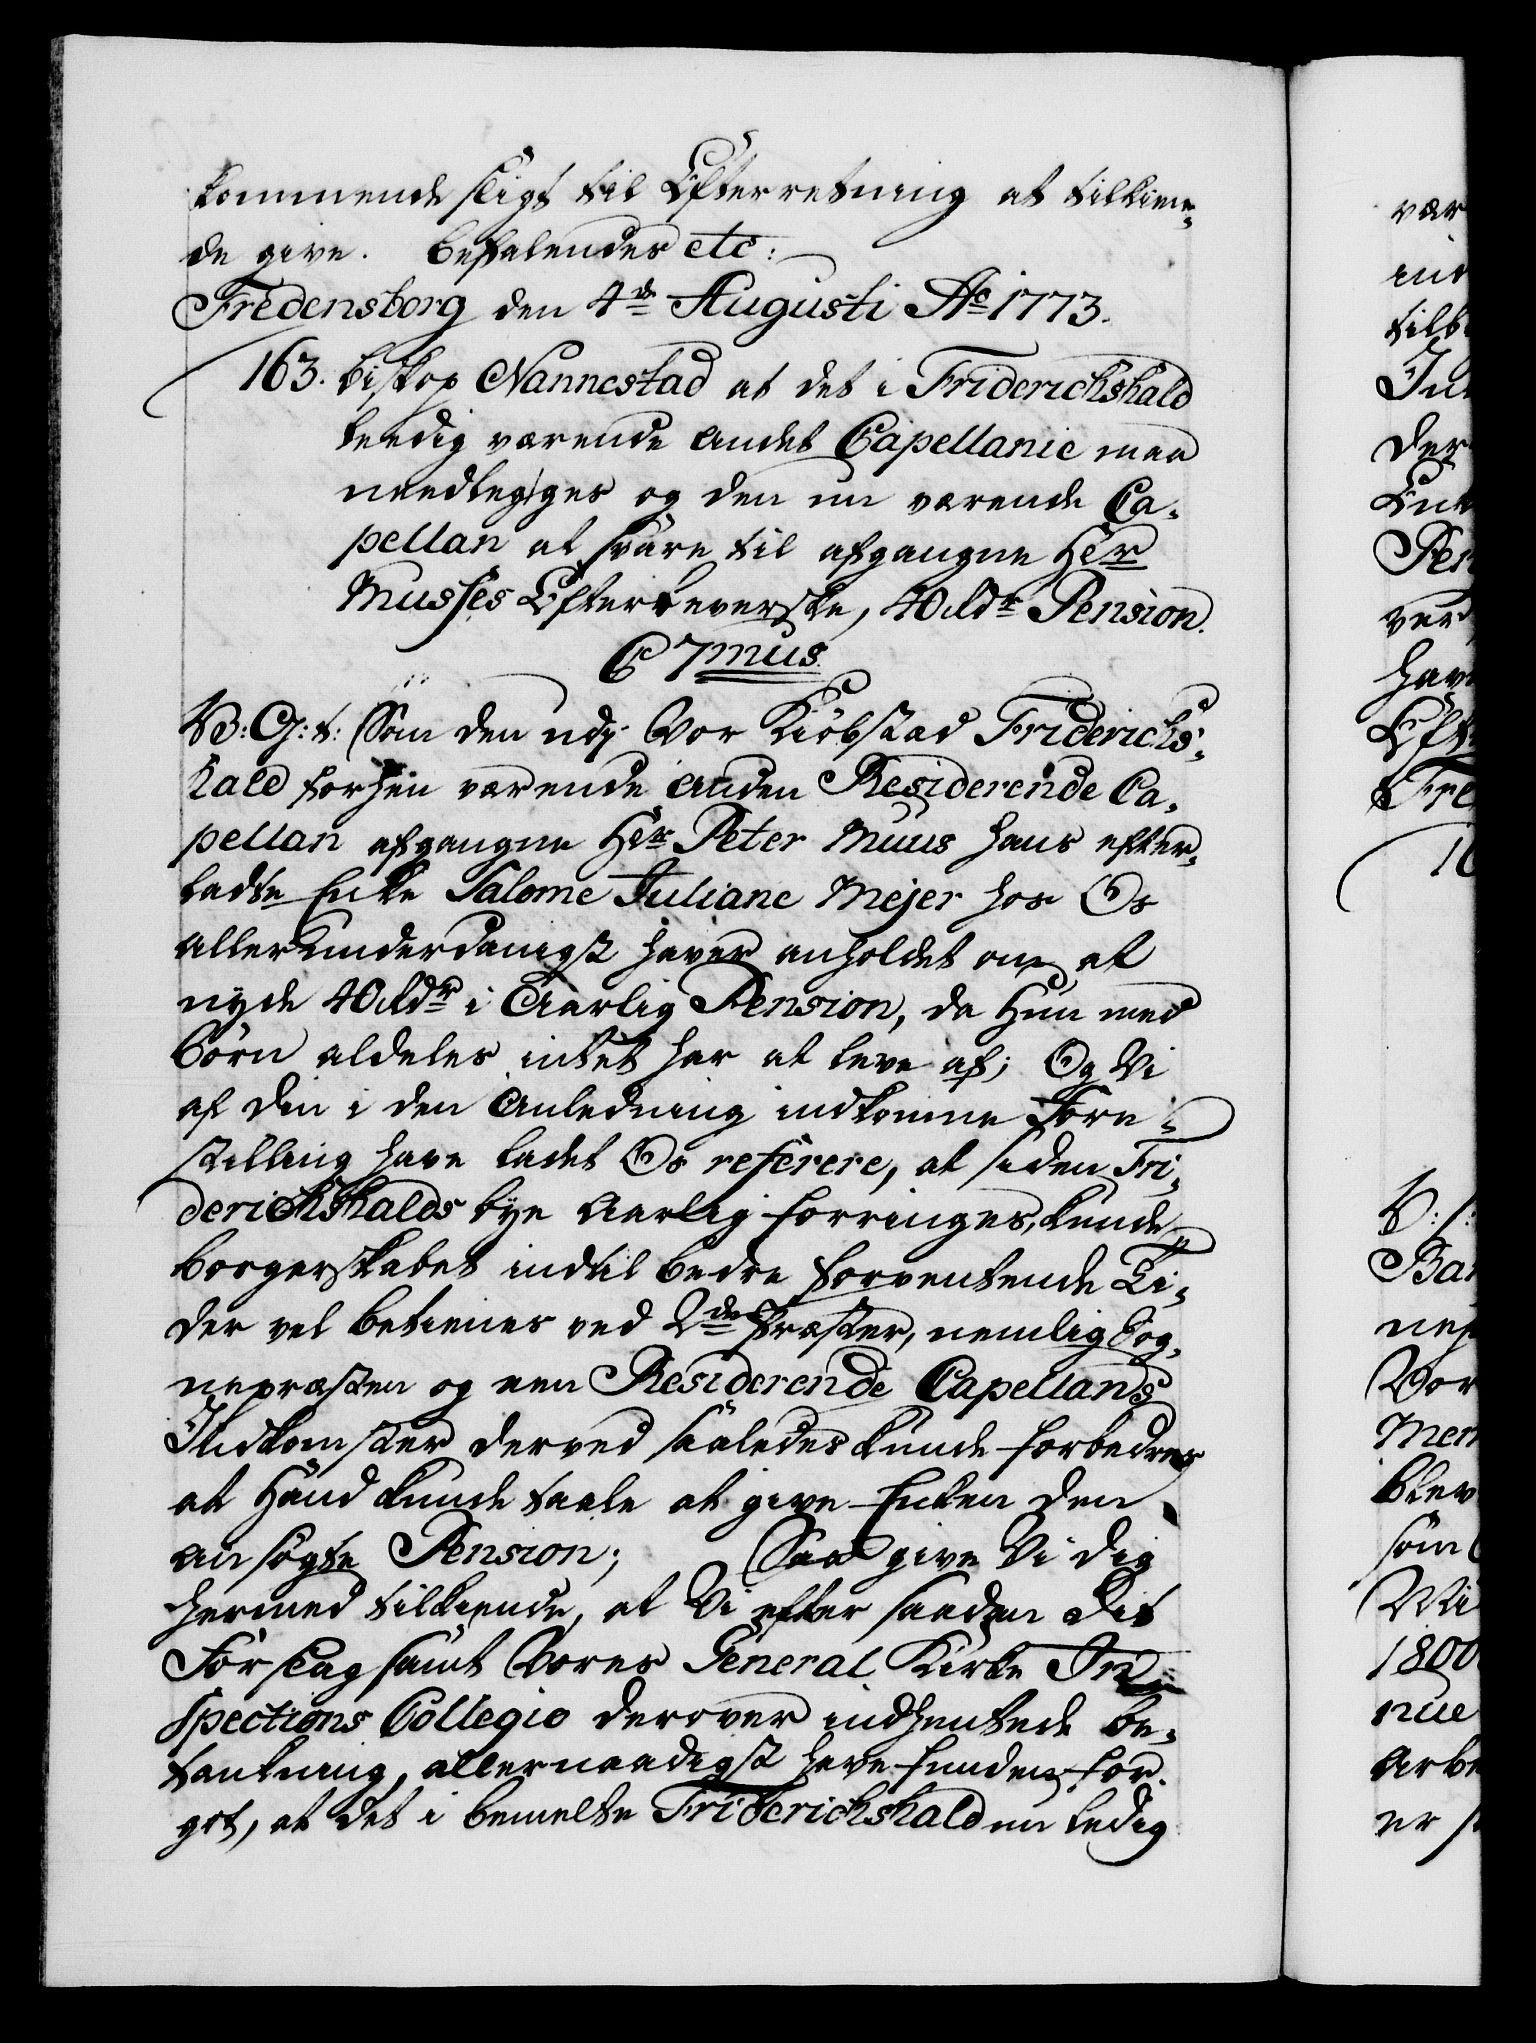 kommende sligt til Efterretning at tilkien¬
de give. Befalendes etc:
Fredensborg den 4de Augusti Ao 1773.
163. Biskop Nannestad at det i Friderichshald
leedig værende andet Capellanie maa
needlegges og den nu værende Ca¬
pellan at svare til afgangne Her
Musses Efterleverske, 40 Rdr Pension.
C 7mus.
V: G: t: Som den udj Vor Kiøbstad Friderichs¬
hald forhen værende anden Residerende Ca¬
pellan afgangne Hr Peter Muus hans efter¬
ladte Enke Salome Juliane Mejer hos Os
allerunderdanigst haver anholdet om at
nyde 40 Rdr i Aarlig Pension, da Hun med
Børn aldeles intet har at leve af; Og Vi
af Din i den Anledning indkomne Fore¬
stilling have ladet Os referere, at siden Fri¬
derichshalds bye aarlig forringes, kunde
borgerskabet indtil bedre forventende Ti¬
der vel betienes ved 2de Præster, nemlig Sog¬
nepræsten og een Residerende Capellans
Indkomster derved saaledes kunde forbedres
at Hand kunde taale at give Enken den
ansøgte Pension; Saa give Vi dig
hermed tilkiende, at Vi efter saadan dit
Forslag samt Vores General Kirke In¬
spections Collegio derover indhentede be¬
tænkning, allernaadigst have funden for
got, at det i bemelte Friderichshald nu ledig